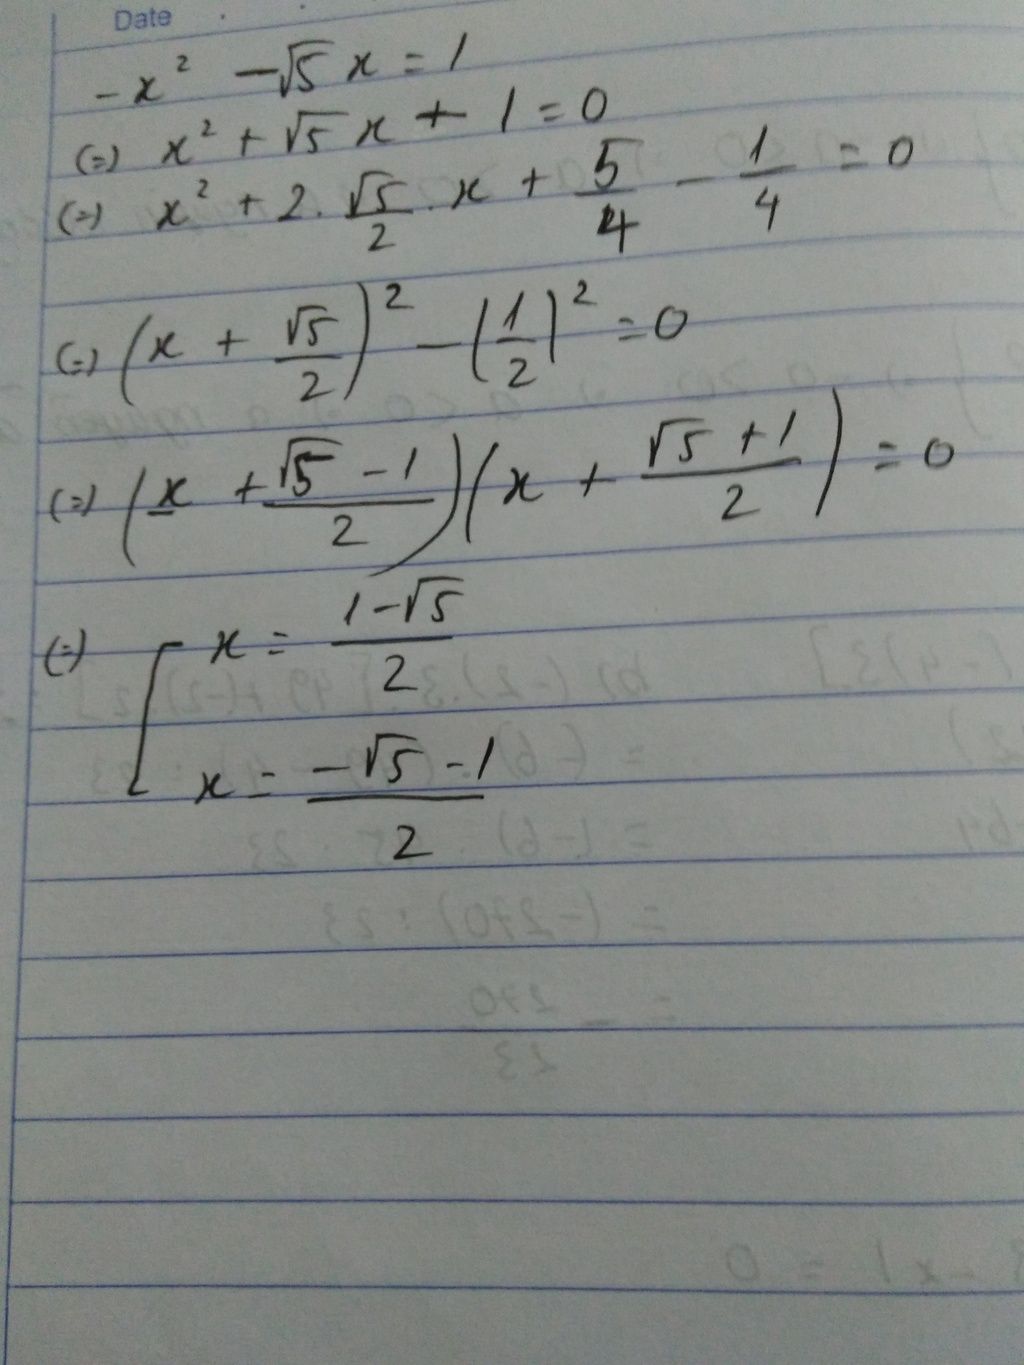 Date
-x² -√5 x = 1
(=) x² + √5 x + 1 = 0
(=) x² + 2. √5/2 .x + 5/4 - 1/4 = 0
(=) (x + √5/2)² - (1/2)² = 0
(=) (x + (√5 - 1)/2)(x + (√5 + 1)/2) = 0
(=) [ x = (1-√5)/2
x = (-√5 - 1)/2